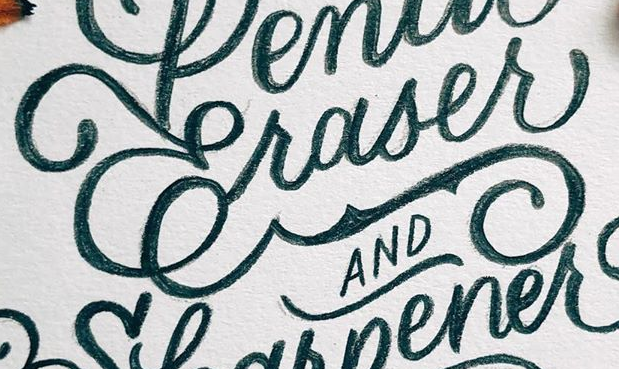 Pencil
Eraser
AND
Sharpener